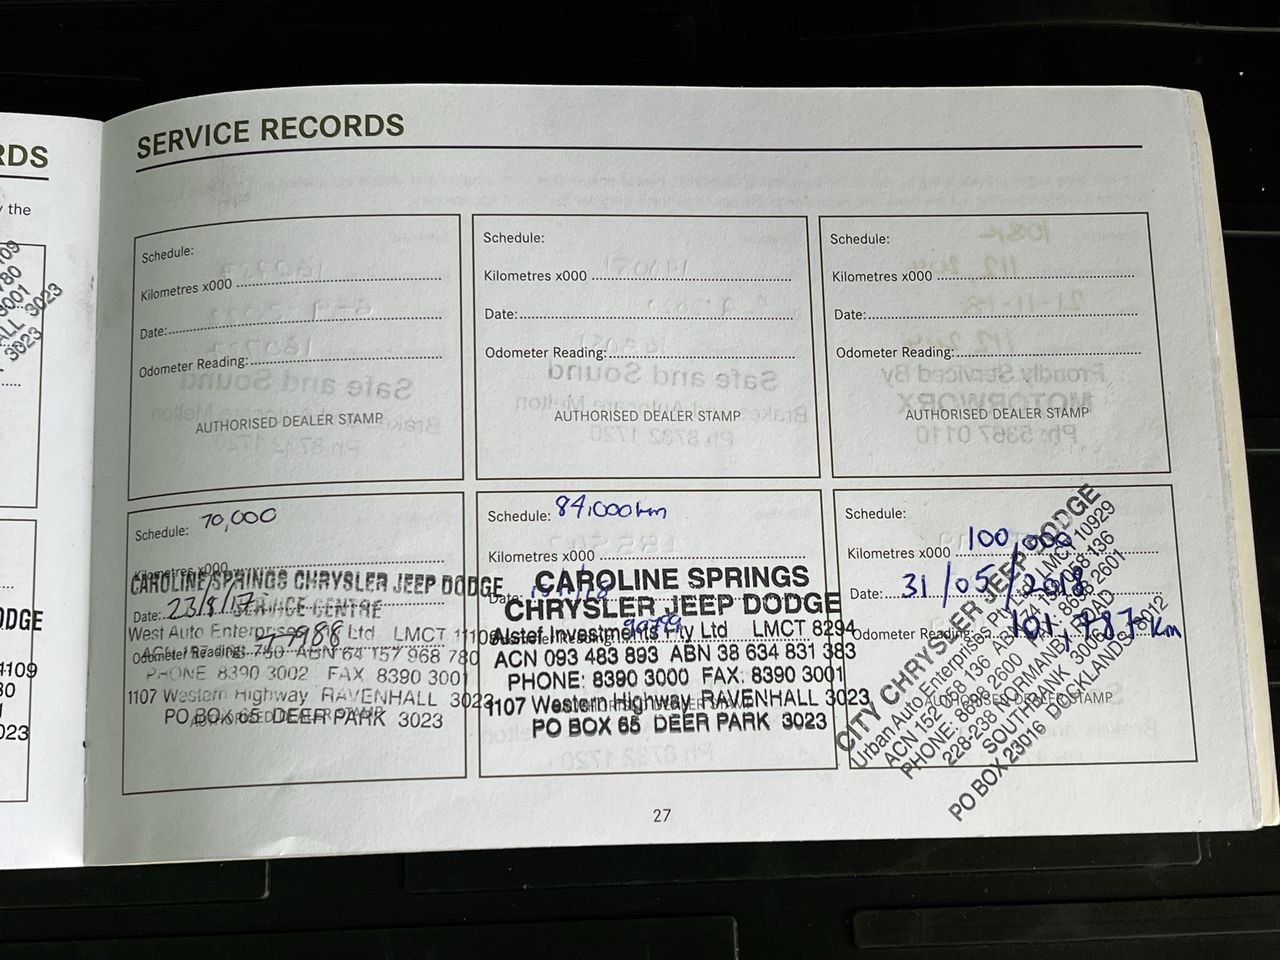 RDS
y the
109
780
3001
ALL 3023
3023
DGE
4109
30
023
SERVICE RECORDS
Schedule:
Kilometres x000
Date:
Odometer Reading:
AUTHORISED DEALER STAMP
Schedule:
Kilometres x000
Date:
Odometer Reading:
AUTHORISED DEALER STAMP
Schedule:
Kilometres x000
Date:
Odometer Reading:
AUTHORISED DEALER STAMP
Schedule: 70,000
Kilometres x000
CAROLINE SPRINGS CHRYSLER JEEP DODGE
SERVICE CENTRE
Date: 23/8/17
West Auto Enterprises Pty Ltd LMCT 11109
Odometer Reading: 77988
ABN 64 157 968 780
PHONE 8390 3002 FAX 8390 3001
1107 Western Highway RAVENHALL 3023
PO BOX 65 DEER PARK 3023
AUTHORISED DEALER STAMP
Schedule: 84,000km
Kilometres x000
CAROLINE SPRINGS
Date:
CHRYSLER JEEP DODGE
Alstef Investments Pty Ltd LMCT 8294
ACN 093 483 893 ABN 38 634 831 383
PHONE: 8390 3000 FAX: 8390 3001
1107 Western Highway RAVENHALL 3023
PO BOX 65 DEER PARK 3023
Schedule:
Kilometres x000 100,000
Date: 31/05/2018
Odometer Reading: 101,787 km
AUTHORISED DEALER STAMP
CITY CHRYSLER JEEP DODGE
Urban Auto Enterprises P/L LMCT 10929
ACN 152 058 136 ABN 74 152 058 136
PHONE: 8698 2600 FAX: 8698 2601
228-238 NORMANBY ROAD
SOUTHBANK 3006
PO BOX 23016 DOCKLANDS 8012
27